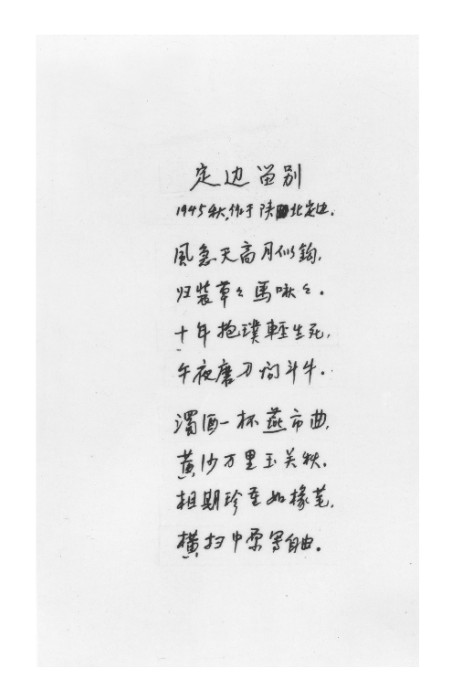 定边留别
1945秋,作于陕北定边.
風急天高月似鈎,
归装草々馬啾々.
十年抱璞輕生死,
午夜磨刀问斗牛.
濁酒一杯燕市曲,
黄沙万里玉关秋.
相期珍重如椽笔,
横扫中原写自由.